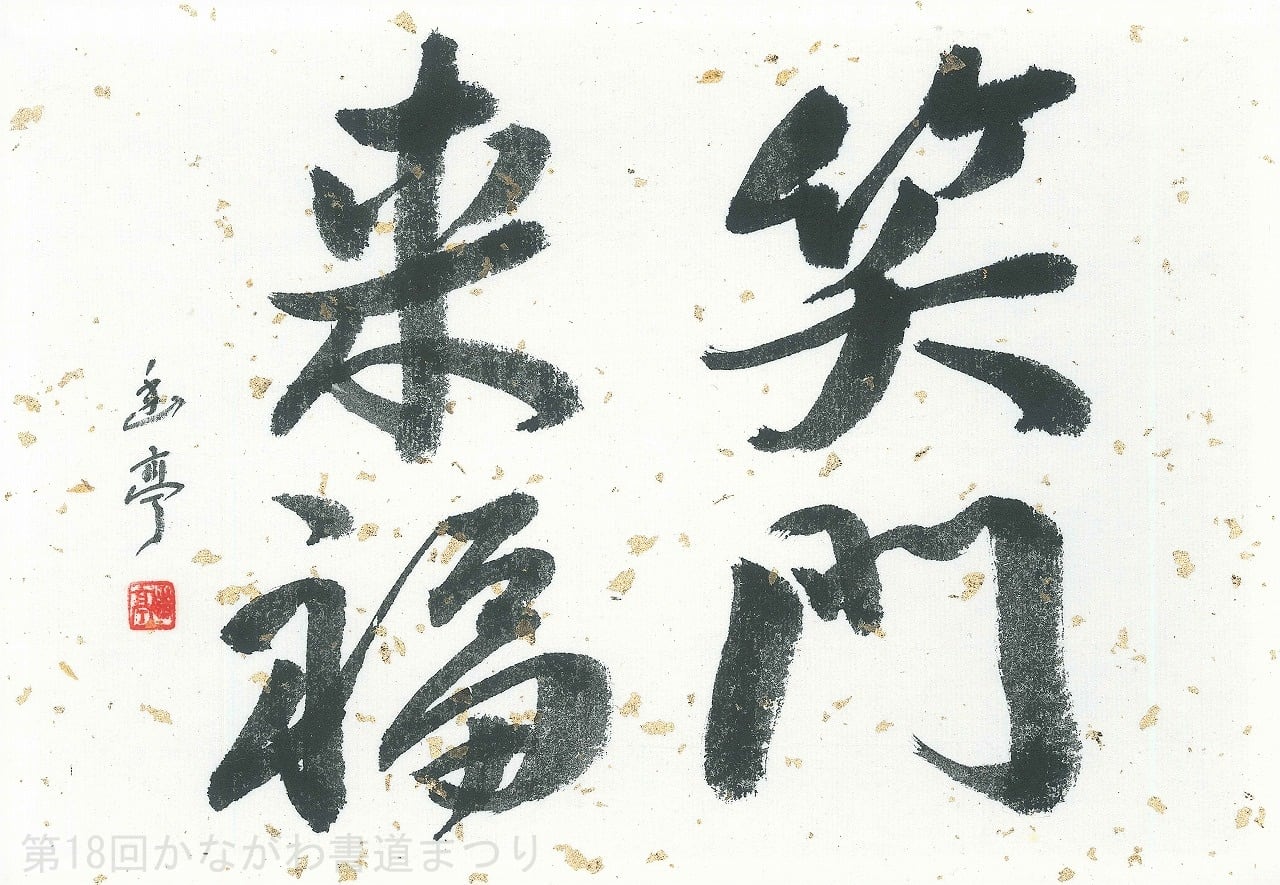 笑門
来福
亭
第18回かながわ書道まつり